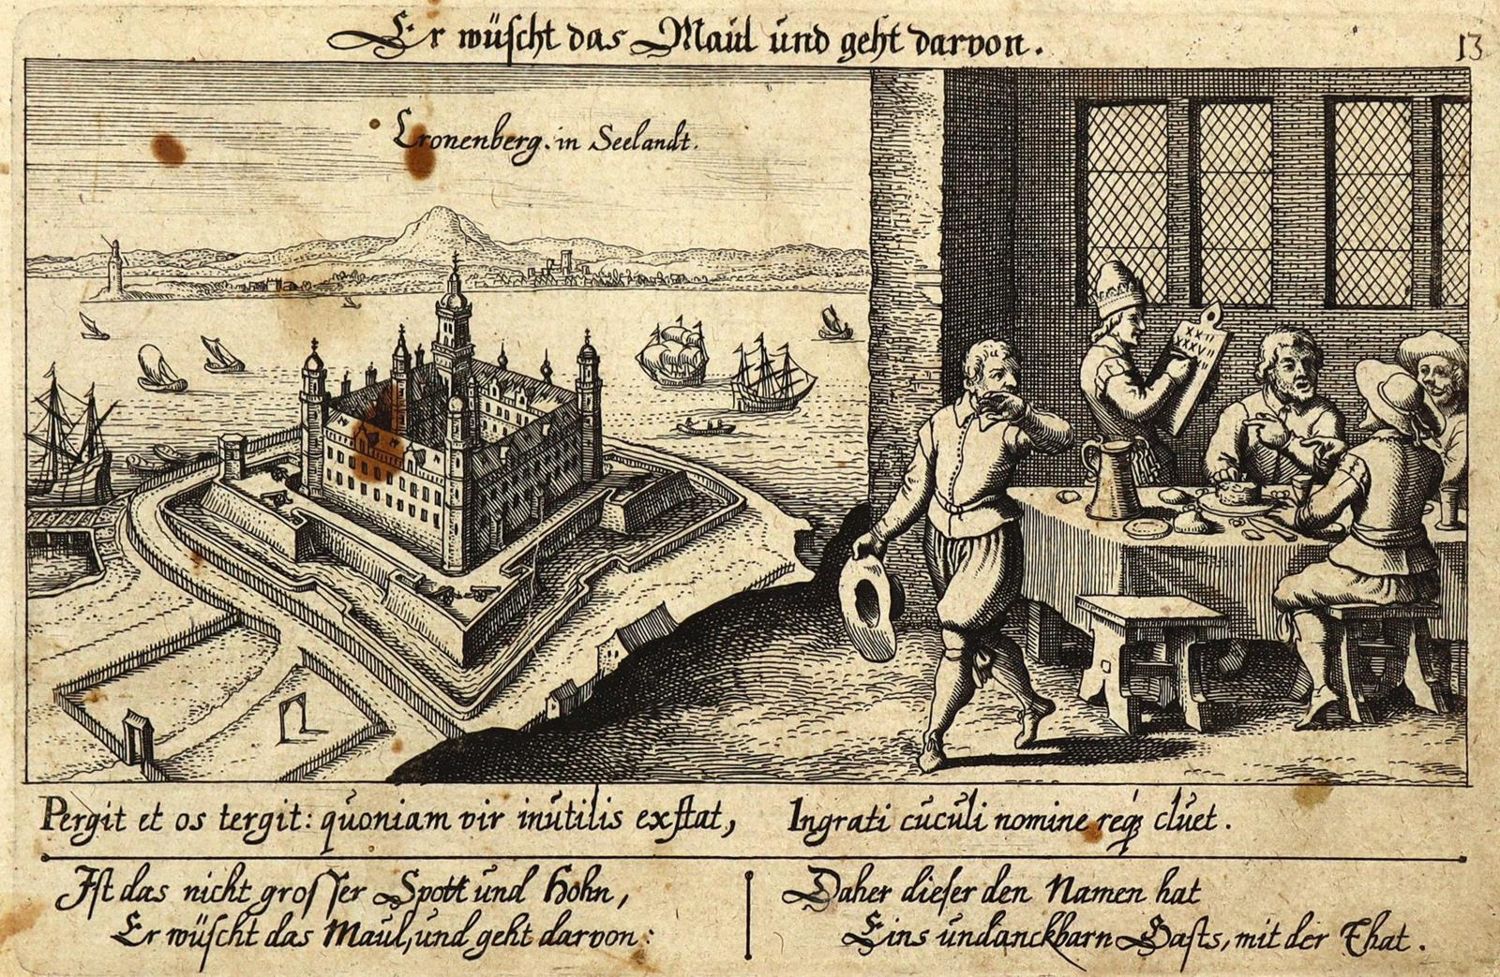 Er wüscht das Maul und geht darvon.
13
Cronenberg. in Seelandt.
XXII
XXXVII
Pergit et os tergit: quoniam vir inutilis exstat, Ingrati cuculi nomine reqꝫ cluet.
Ist das nicht grosser Spott und Hohn,
Er wüscht das Maul, und geht darvon:
Daher dieser den Namen hat
Eins undanckbarn Gasts, mit der That.